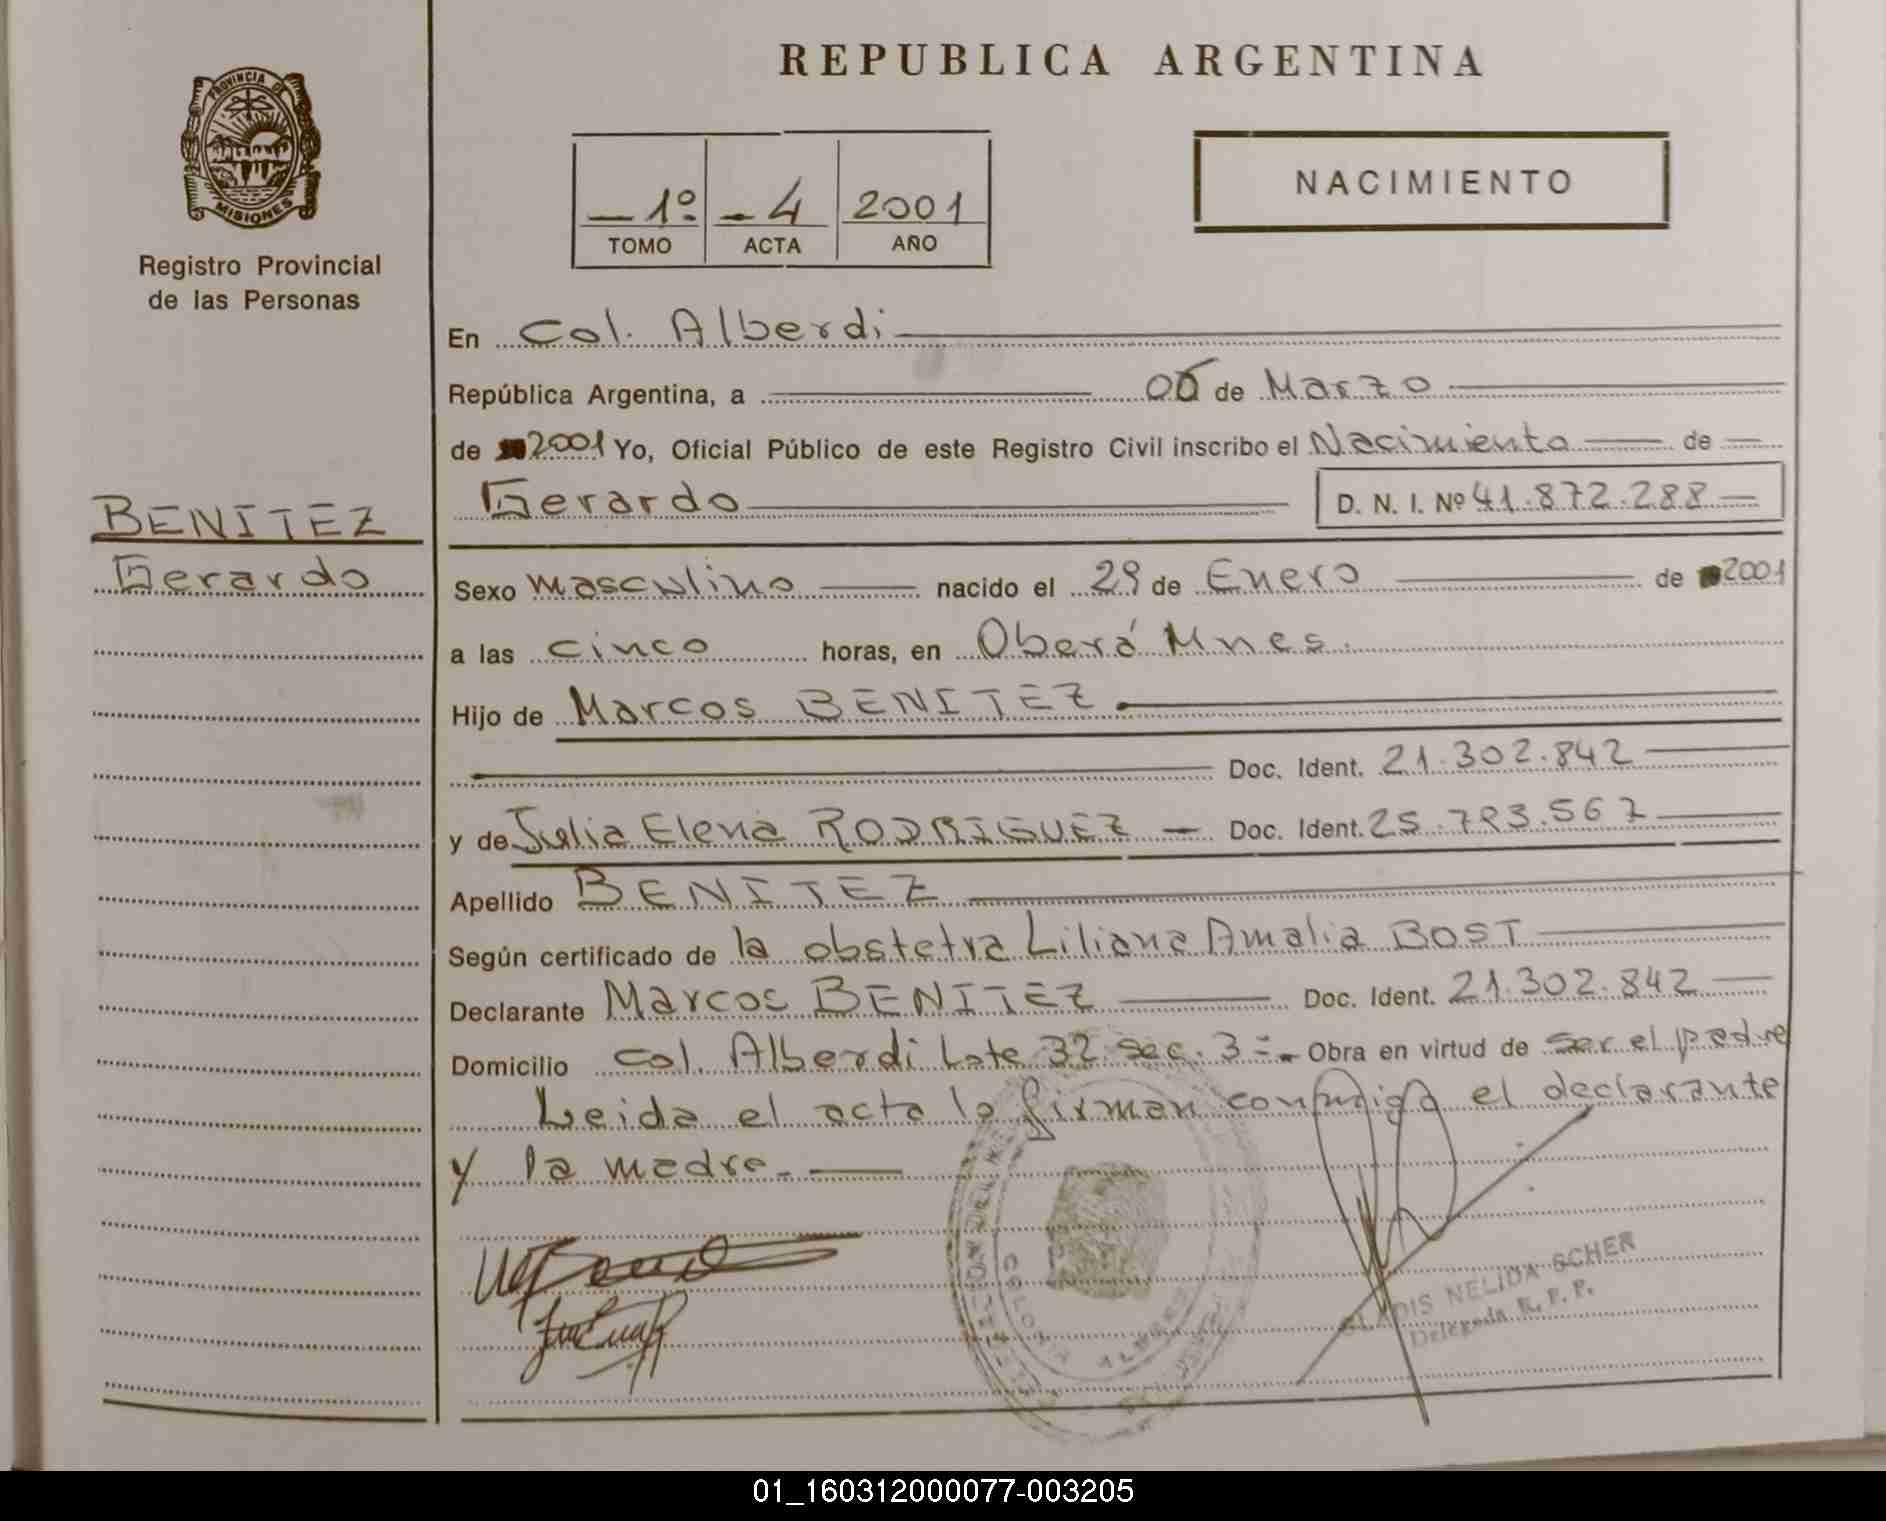 REPUBLICA ARGENTINA
PROVINCIA DE
MISIONES
Registro Provincial
de las Personas
1º 4 2001
TOMO ACTA AÑO
NACIMIENTO
BENITEZ
Gerardo
En Col. Alberdi
República Argentina, a 06 de Marzo
de 2001 Yo, Oficial Público de este Registro Civil inscribo el Nacimiento de
Gerardo D. N. I. Nº 41.872.288
Sexo masculino nacido el 29 de Enero de 2001
a las cinco horas, en Oberá Mnes.
Hijo de Marcos BENITEZ
Doc. Ident. 21.302.842
y de Julia Elena RODRIGUEZ Doc. Ident. 25.793.567
Apellido BENITEZ
Según certificado de la obstetra Liliana Amalia BOST
Declarante Marcos BENITEZ Doc. Ident. 21.302.842
Domicilio col. Alberdi Lote 32 sec. 3 Obra en virtud de ser el padre
Leida el acta lo firman conmigo el declarante
y la madre.
COLONIA ALBERDI
GLADIS NELIDA SCHER
Delegada R. P. P.
01_160312000077-003205